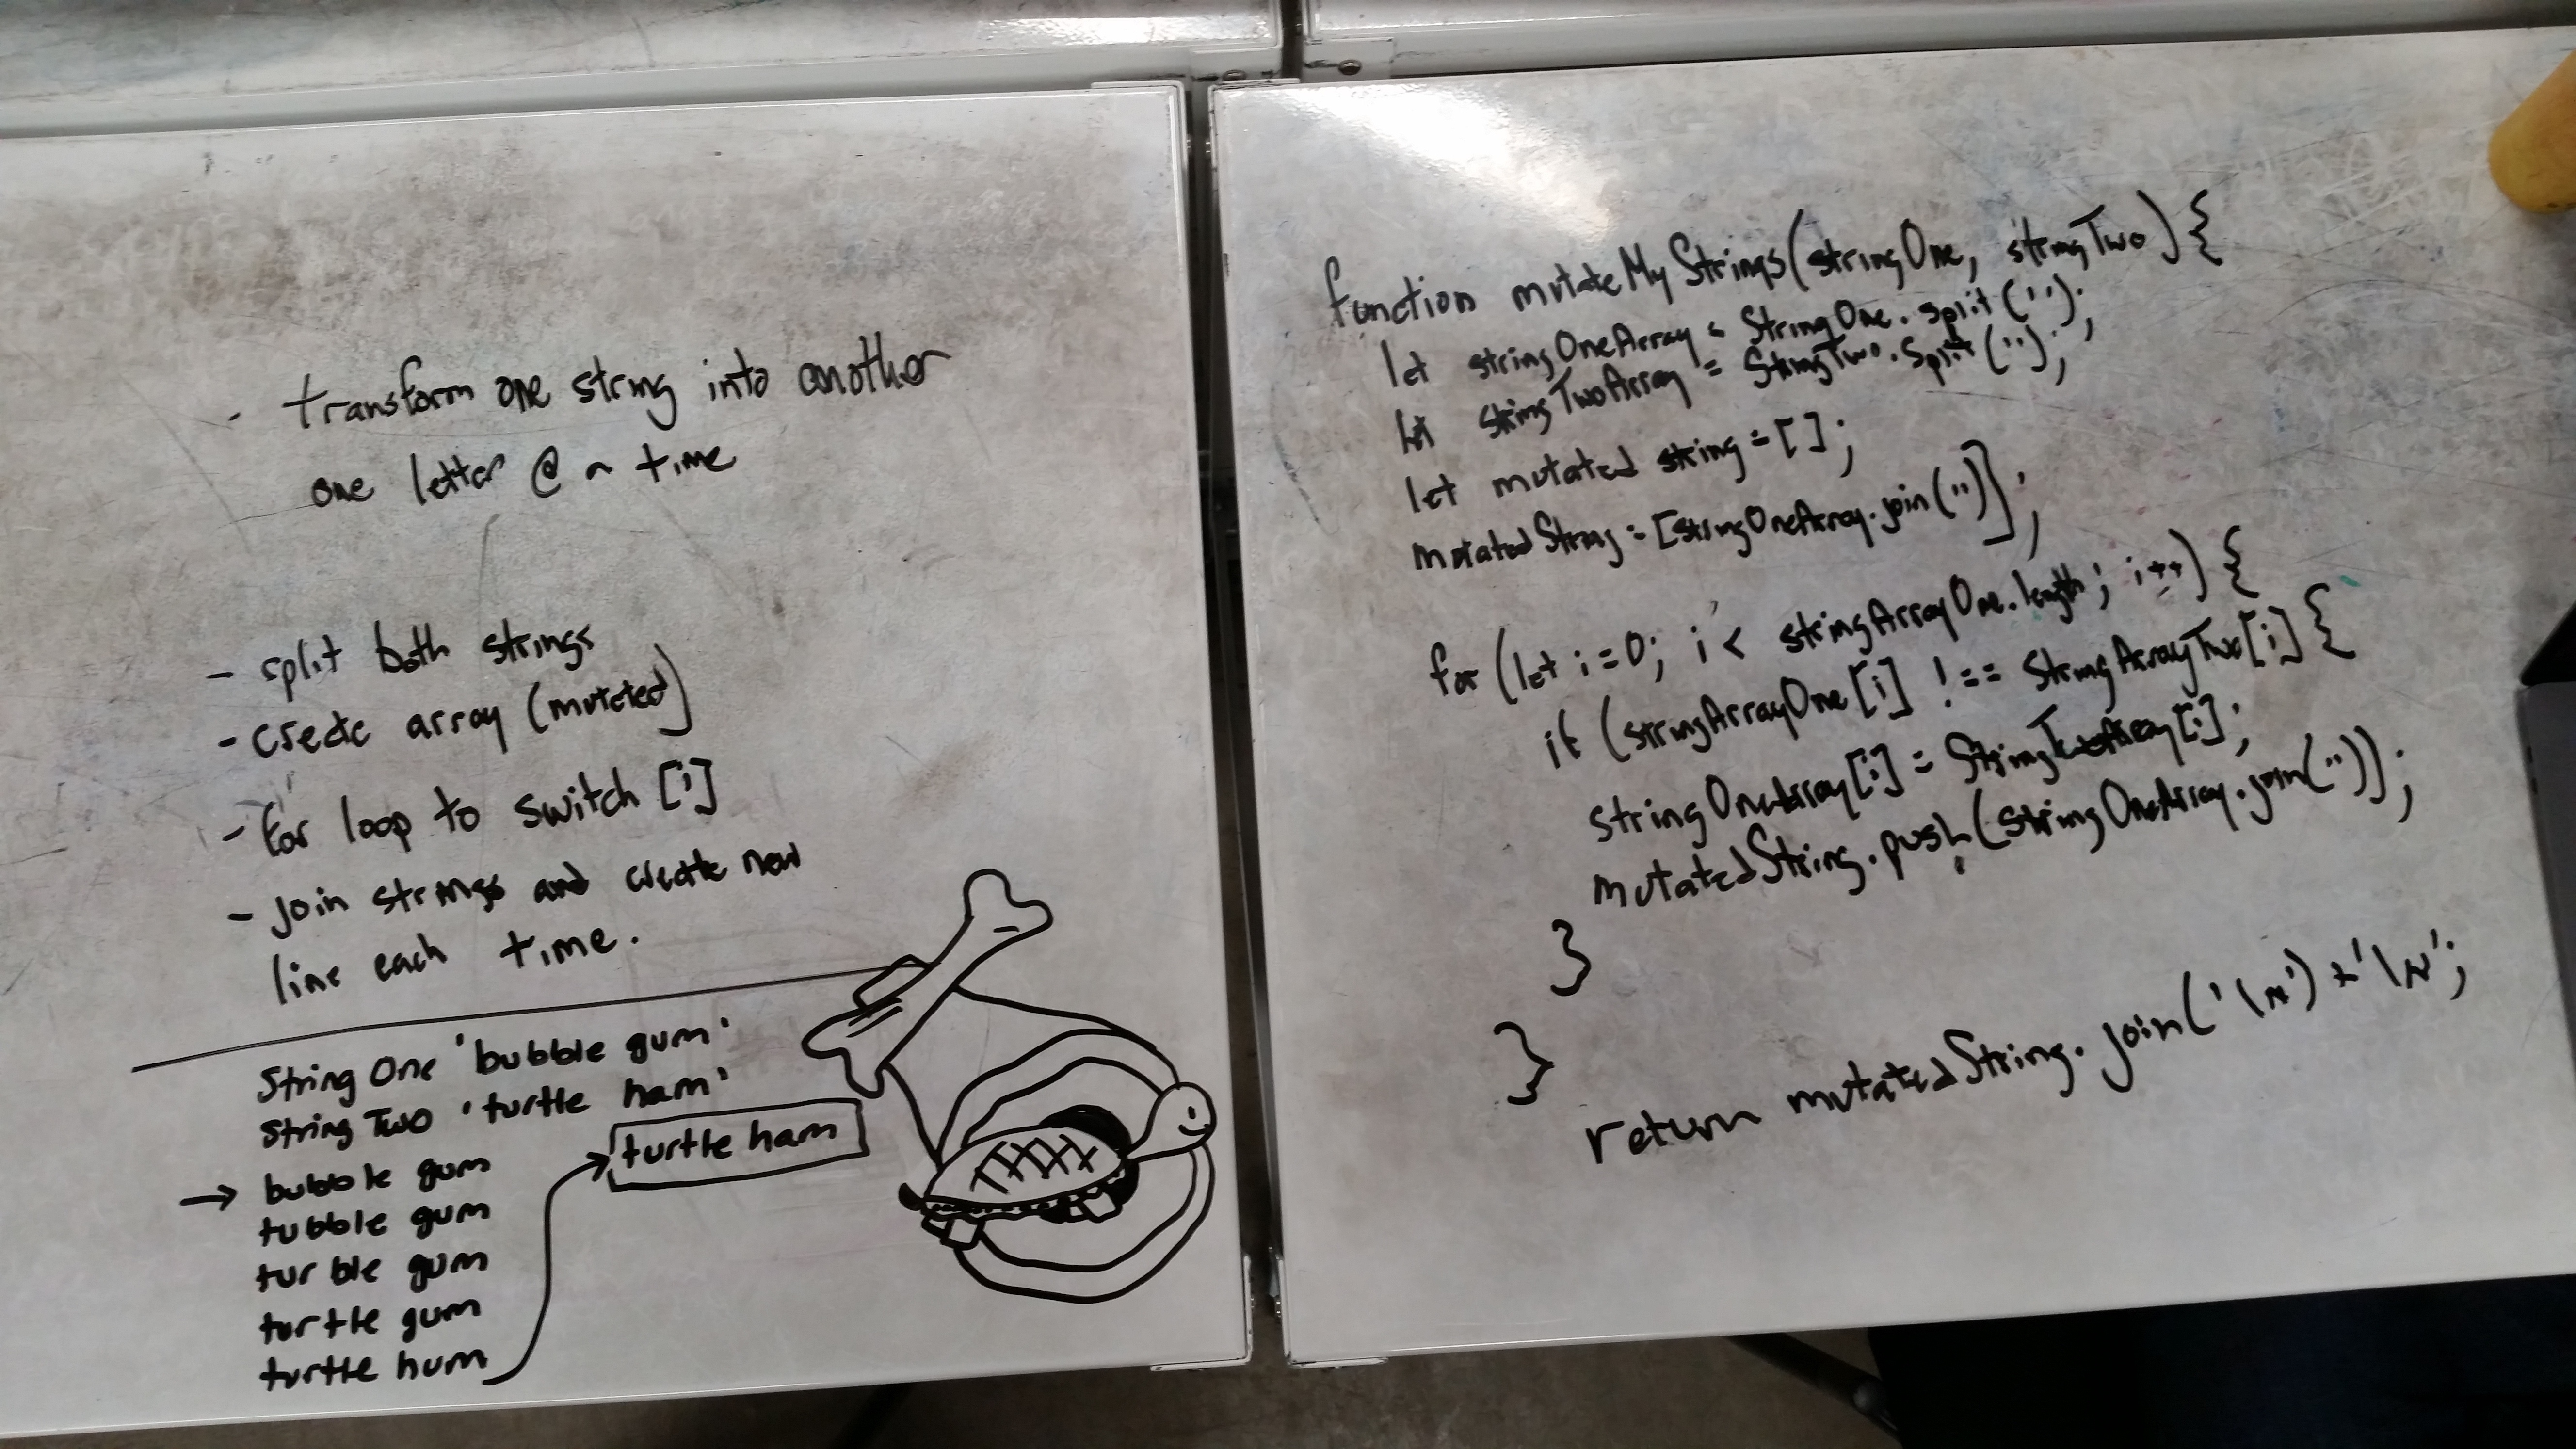 - transform one string into another
one letter @ a time
- split both strings
- create array (mutated)
- for loop to switch [i]
- join strings and create new
line each time.
String One 'bubble gum'
String Two 'turtle ham'
→ bubble gum
tubble gum
turble gum
turtle gum
turtle hum
turtle ham
function mutateMyStrings(stringOne, stringTwo){
let stringOneArray = StringOne.split('');
let stringTwoArray = StringTwo.split('');
let mutated string = [];
mutatedString = [stringOneArray.join('')];
for (let i=0; i < stringArrayOne.length; i++) {
if (stringArrayOne[i] !== StringArrayTwo[i] {
stringOneArray[i] = StringTwoArray[i];
mutatedString.push(stringOneArray.join(''));
}
}
return mutatedString.join('\n') + '\n';